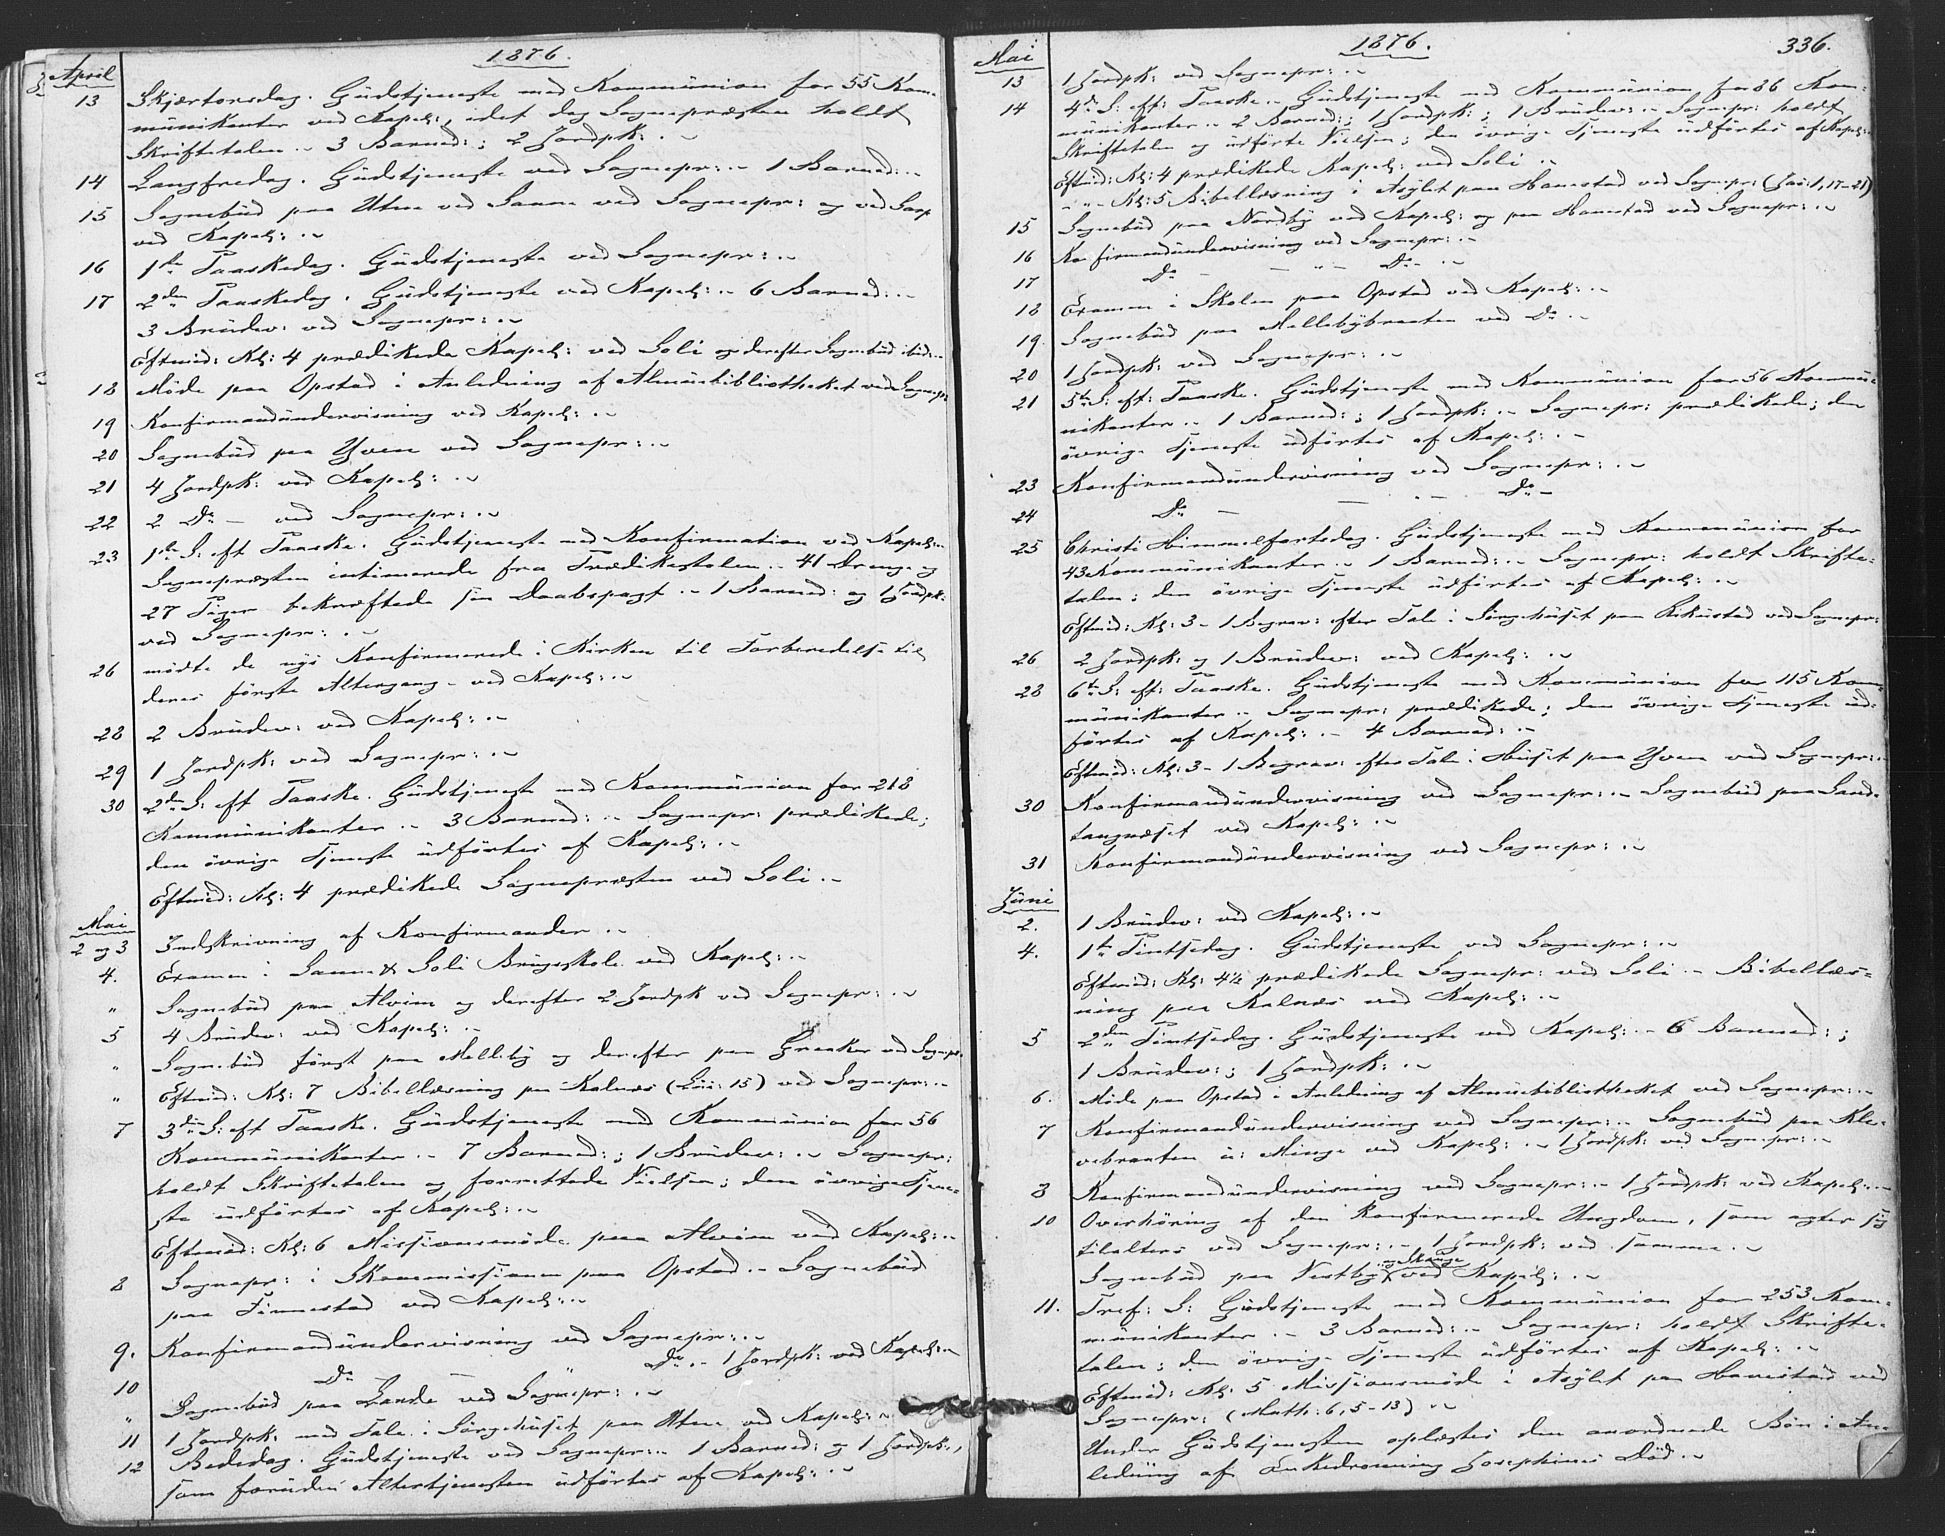 1876.
April
13 Skjærtorsdag. Gudstjeneste med Kommunion for 55 Kom-
munikanter ved Kapel:, idet dog Sognepræsten holdt
Skriftetalen .- 3 Barned:; 2 Jordpk: .~
14 Langfredag. Gudstjeneste ved Sognepr: .- 1 Barned: .~
15 Sognebud paa Utne ved Sanne ved Sognepr: og ved Sarp
ved Kapel: .~
16 1ste Paaskedag. Gudstjeneste ved Sognepr: .~
17 2den Paaskedag. Gudstjeneste ved Kapel: .- 6 Barned: .~
3 Brudev: ved Sognepr: .~
Eftmid: Kl: 4 prædikede Kapel: ved Soli og derefter Sognebud ibid: .~
18 Møde paa Opstad i Anledning af Almuebibliotheket ved Sognepr:
19 Konfirmandundervisning ved Kapel: .~
20 Sognebud paa Yven ved Sognepr: .~
21 4 Jordpk: ved Kapel: .~
22 2 Do - ved Sognepr: .~
23 1ste S: eft Paaske. Gudstjeneste med Konfirmation ved Kapel: .~
Sognepræsten intimerede fra Prædikestolen .- 41 Drenge og
27 Piger bekræftede sin Daabspagt .- 1 Barned: og 1 Jordpk:
ved Sognepr: .~
26 mødte de nys Konfirmerede i Kirken til Forberedelse til
deres første Altergang - ved Kapel: .~
28 2 Brudev: ved Kapel: .~
29 1 Jordpk: ved Sognepr: .~
30 2den S: eft Paaske. Gudstjeneste med Kommunion for 218
Kommunikanter .- 3 Barned: .- Sognepr: prædikede;
den øvrige Tjeneste udførtes af Kapel: .~
Eftmid: Kl: 4 prædikede Sognepræsten ved Soli .~
Mai
2 og 3 Indskrivning af Konfirmander .~
4. Examen i Sanne & Soli Brugsskole ved Kapel: .~
" Sognebud paa Alvim og derefter 2 Jordpk ved Sognepr: .~
5 4 Brudev: ved Kapel: .~
" Sognebud først paa Melleby og derefter paa Greaker ved Sognepr:
" Eftmid: Kl: 7 Bibellæsning paa Kalnæs (Luc: 15) ved Sognepr: .~
7 3die S: eft Paaske. Gudstjeneste med Kommunion for 56
Kommunikanter .- 7 Barned:; 1 Brudev: .~ Sognepr:
holdt Skriftetalen og forrettede Vielsen; den øvrige Tjene-
ste udførtes af Kapel: .~
Eftmid: Kl: 6 Missionsmøde paa Alvim ved Kapel: .~
8 Sognepr: i Skommissionen paa Opstad .- Sognebud
paa Finnestad ved Kapel: .~
9. Konfirmandundervisning ved Sognepr: .~
10 Do - " Do .- 1 Jordpk: ved Kapel: .~
" Sognebud paa Lande ved Sognepr: .~
11 1 Jordpk: med Tale i Sørgehuset paa Utne ved Kapel: .~
12 Bededag. Gudstjeneste ved Sognepr: .- 1 Barned: og 1 Jordpk:,
som foruden Altertjenesten udførtes af Kapel: .~
1876.
336.
Mai
13 1 Jordpk: ved Sognepr: .~
14 4de S: eft: Paaske. Gudstjeneste med Kommunion for 86 Kom-
munikanter .- 2 Barned:; 1 Jordpk:; 1 Brudev: .- Sognepr: holdt
Skriftetalen og udførte Vielsen; den øvrige Tjeneste udførtes af Kapel: .~
Eftmid: Kl: 4 prædikede Kapel: ved Soli .~
- " - Kl: 5 Bibellæsning i Asylet paa Hanestad ved Sognepr: (Jac: 1, 17-21)
15 Sognebud paa Nordby ved Kapel: og paa Hanestad ved Sognepr: .~
16 Konfirmandundervisning ved Sognepr: .~
17 Do - - " - Do .~
18 Examen i Skolen paa Opstad ved Kapel: .~
19. Sognebud paa Mellebybraaten ved Do .~
20 1 Jordpk: ved Sognepr: .~
21 5te S: eft: Paaske. Gudstjeneste med Kommunion for 56 Kommu-
nikanter .- 1 Barned:; 1 Jordpk: .- Sognepr: prædikede; den
øvrige Tjeneste udførtes af Kapel: .~
23 Konfirmandundervisning ved Sognepr: .~
24 Do - - . - Do -
25 Christi Himmelfartsdag. Gudstjeneste med Kommunion for
43 Kommunikanter .- 1 Barned: .- Sognepr: holdt Skrifte-
talen; den øvrige Tjeneste udførtes af Kapel: .~
Eftmid: Kl: 3 - 1 Begrav: efter Tale i Sørgehuset paa Kikustad ved Sognepr:
26 2 Jordpk: og 1 Brudev: ved Kapel: .~
28 6te S: eft: Paaske. Gudstjeneste med Kommunion for 115 Kom-
munikanter .- Sognepr: prædikede; den øvrige Tjeneste ud-
førtes af Kapel: .- 4 Barned: .~
Eftmid: Kl: 3 - 1 Begrav: efter Tale i Huset paa Yven ved Sognepr: .~
30 Konfirmandundervisning ved Sognepr: .- Sognebud paa Sand-
tangnæset ved Kapel: .~
31 Konfirmandundervisning ved Sognepr: .~
Juni
2. 1 Brudev: ved Kapel: .~
4. 1ste Pintsedag. Gudstjeneste ved Sognepr: .~
Eftmid: Kl: 4½ prædikede Sognepr: ved Soli .- Bibellæs-
ning paa Kalnæs ved Kapel: .~
5 2den Pintsedag. Gudstjeneste ved Kapel: .- 6 Barned:;
1 Brudev:; 1 Jordpk: .~
6. Møde paa Opstad i Anledning af Almuebibliotheket ved Sognepr: .~
7 Konfirmandundervisning ved Sognepr: .- Sognebud paa Kle-
vebraaten u: Minge ved Kapel: .- 1 Jordpk: ved Sognepr: .~
8 Konfirmandundervisning ved Sognepr: .- 1 Jordpk: ved Kapel: .~
10 Overhøring af den konfirmerede Ungdom, som agter sig
tilalters ved Sognepr: .- 1 Jordpk: ved samme .~
og Stange
Sognebud paa Vestby ved Kapel: .~
11. Tref: S: Gudstjeneste med Kommunion for 253 Kom-
munikanter .- 3 Barned: .- Sognepr: holdt Skrifte-
talen; den øvrige Tjeneste udførtes af Kapel: .~
Eftmid: Kl: 5 Missionsmøde i Asylet paa Hanestad ved
Sognepr: (Math: 6, 5-13) .~
Under Gudstjenesten oplæstes den anordnede Bøn i An-
ledning af Enkedronning Josephines Død .~